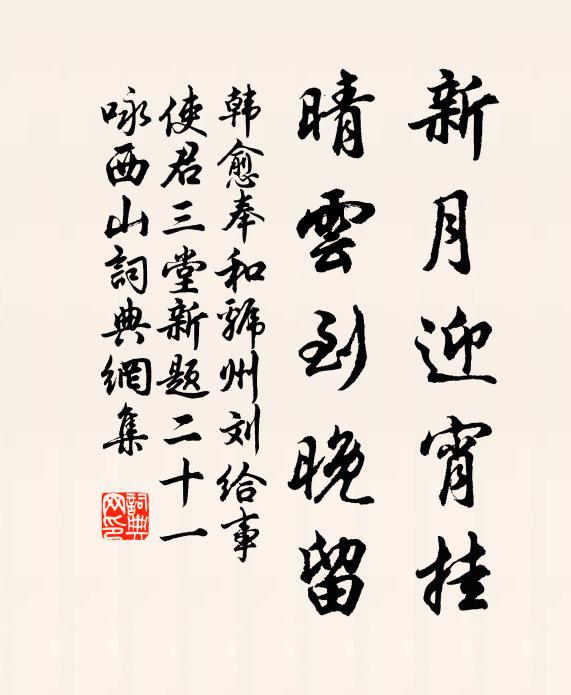 新月迎宵挂
晴雲到晚留
韩愈奉和虢州刘给事
使君三堂新题二十一
咏西山詞典網集
詞典
网印